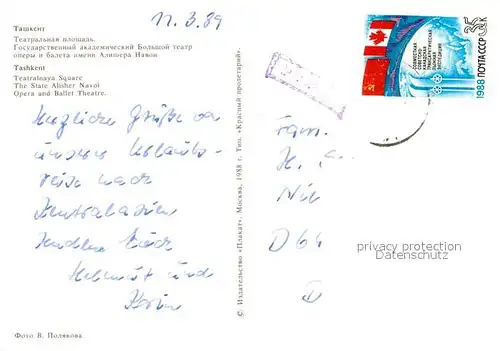 11.3.89
Ташкент
Театральная площадь.
Государственный академический Большой театр
оперы и балета имени Алишера Навои
Tashkent
Teatralnaya Square
The State Alisher Navoi
Opera and Ballet Theatre.
Herzliche Grüße von
unserer Urlaubs-
reise nach
Zentralasien
senden Euch
Helmut und
Karin
Фото В. Полякова
© Издательство «Плакат». Москва, 1988 г. Тип. «Красный пролетарий».
35 к
ПОЧТА СССР
1988
СОВМЕСТНАЯ
СОВЕТСКО-
КАНАДСКАЯ
ТРАНСАРКТИЧЕСКАЯ
ЛЫЖНАЯ
ЭКСПЕДИЦИЯ
Fam.
H.
D 64
privacy protection
Datenschutz